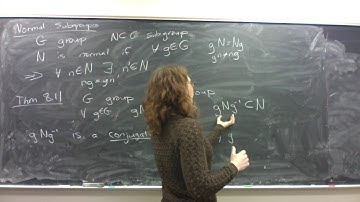 Normal Subgroups
G group N⊂G subgroup
N is normal if ∀ g∈G gN=Ng
⇒ ∀ n∈N ∃ n'∈N gn≠ng
ng=gn'
Thm 8.11 G group
∀ g∈G, gNg⁻¹⊂N
gNg⁻¹ is a conjugate